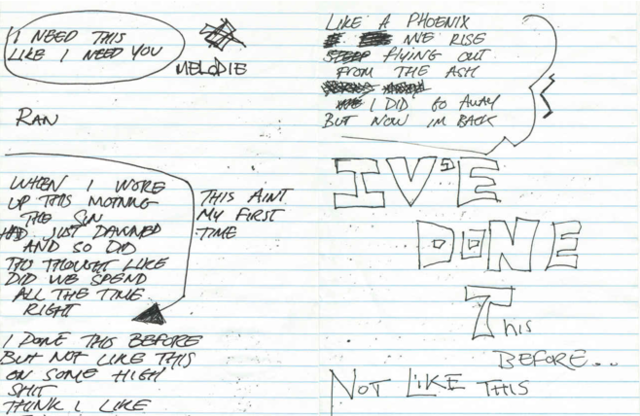 I NEED THIS
LIKE I NEED YOU
MELODIE
RAN
WHEN I WOKE
UP THIS MORNING
THE SUN
HAD JUST DAWNED
AND SO DID
THE THOUGHT LIKE
DID WE SPEND
ALL THE TIME
RIGHT
THIS AINT
MY FIRST
TIME
I DONE THIS BEFORE
BUT NOT LIKE THIS
ON SOME HIGH
SHIT
THINK I LIKE
LIKE A PHOENIX
WE RISE
FLYING OUT
FROM THE ASH
I DID GO AWAY
BUT NOW IM BACK
IV'E
DONE
THIS
BEFORE...
NOT LIKE THIS